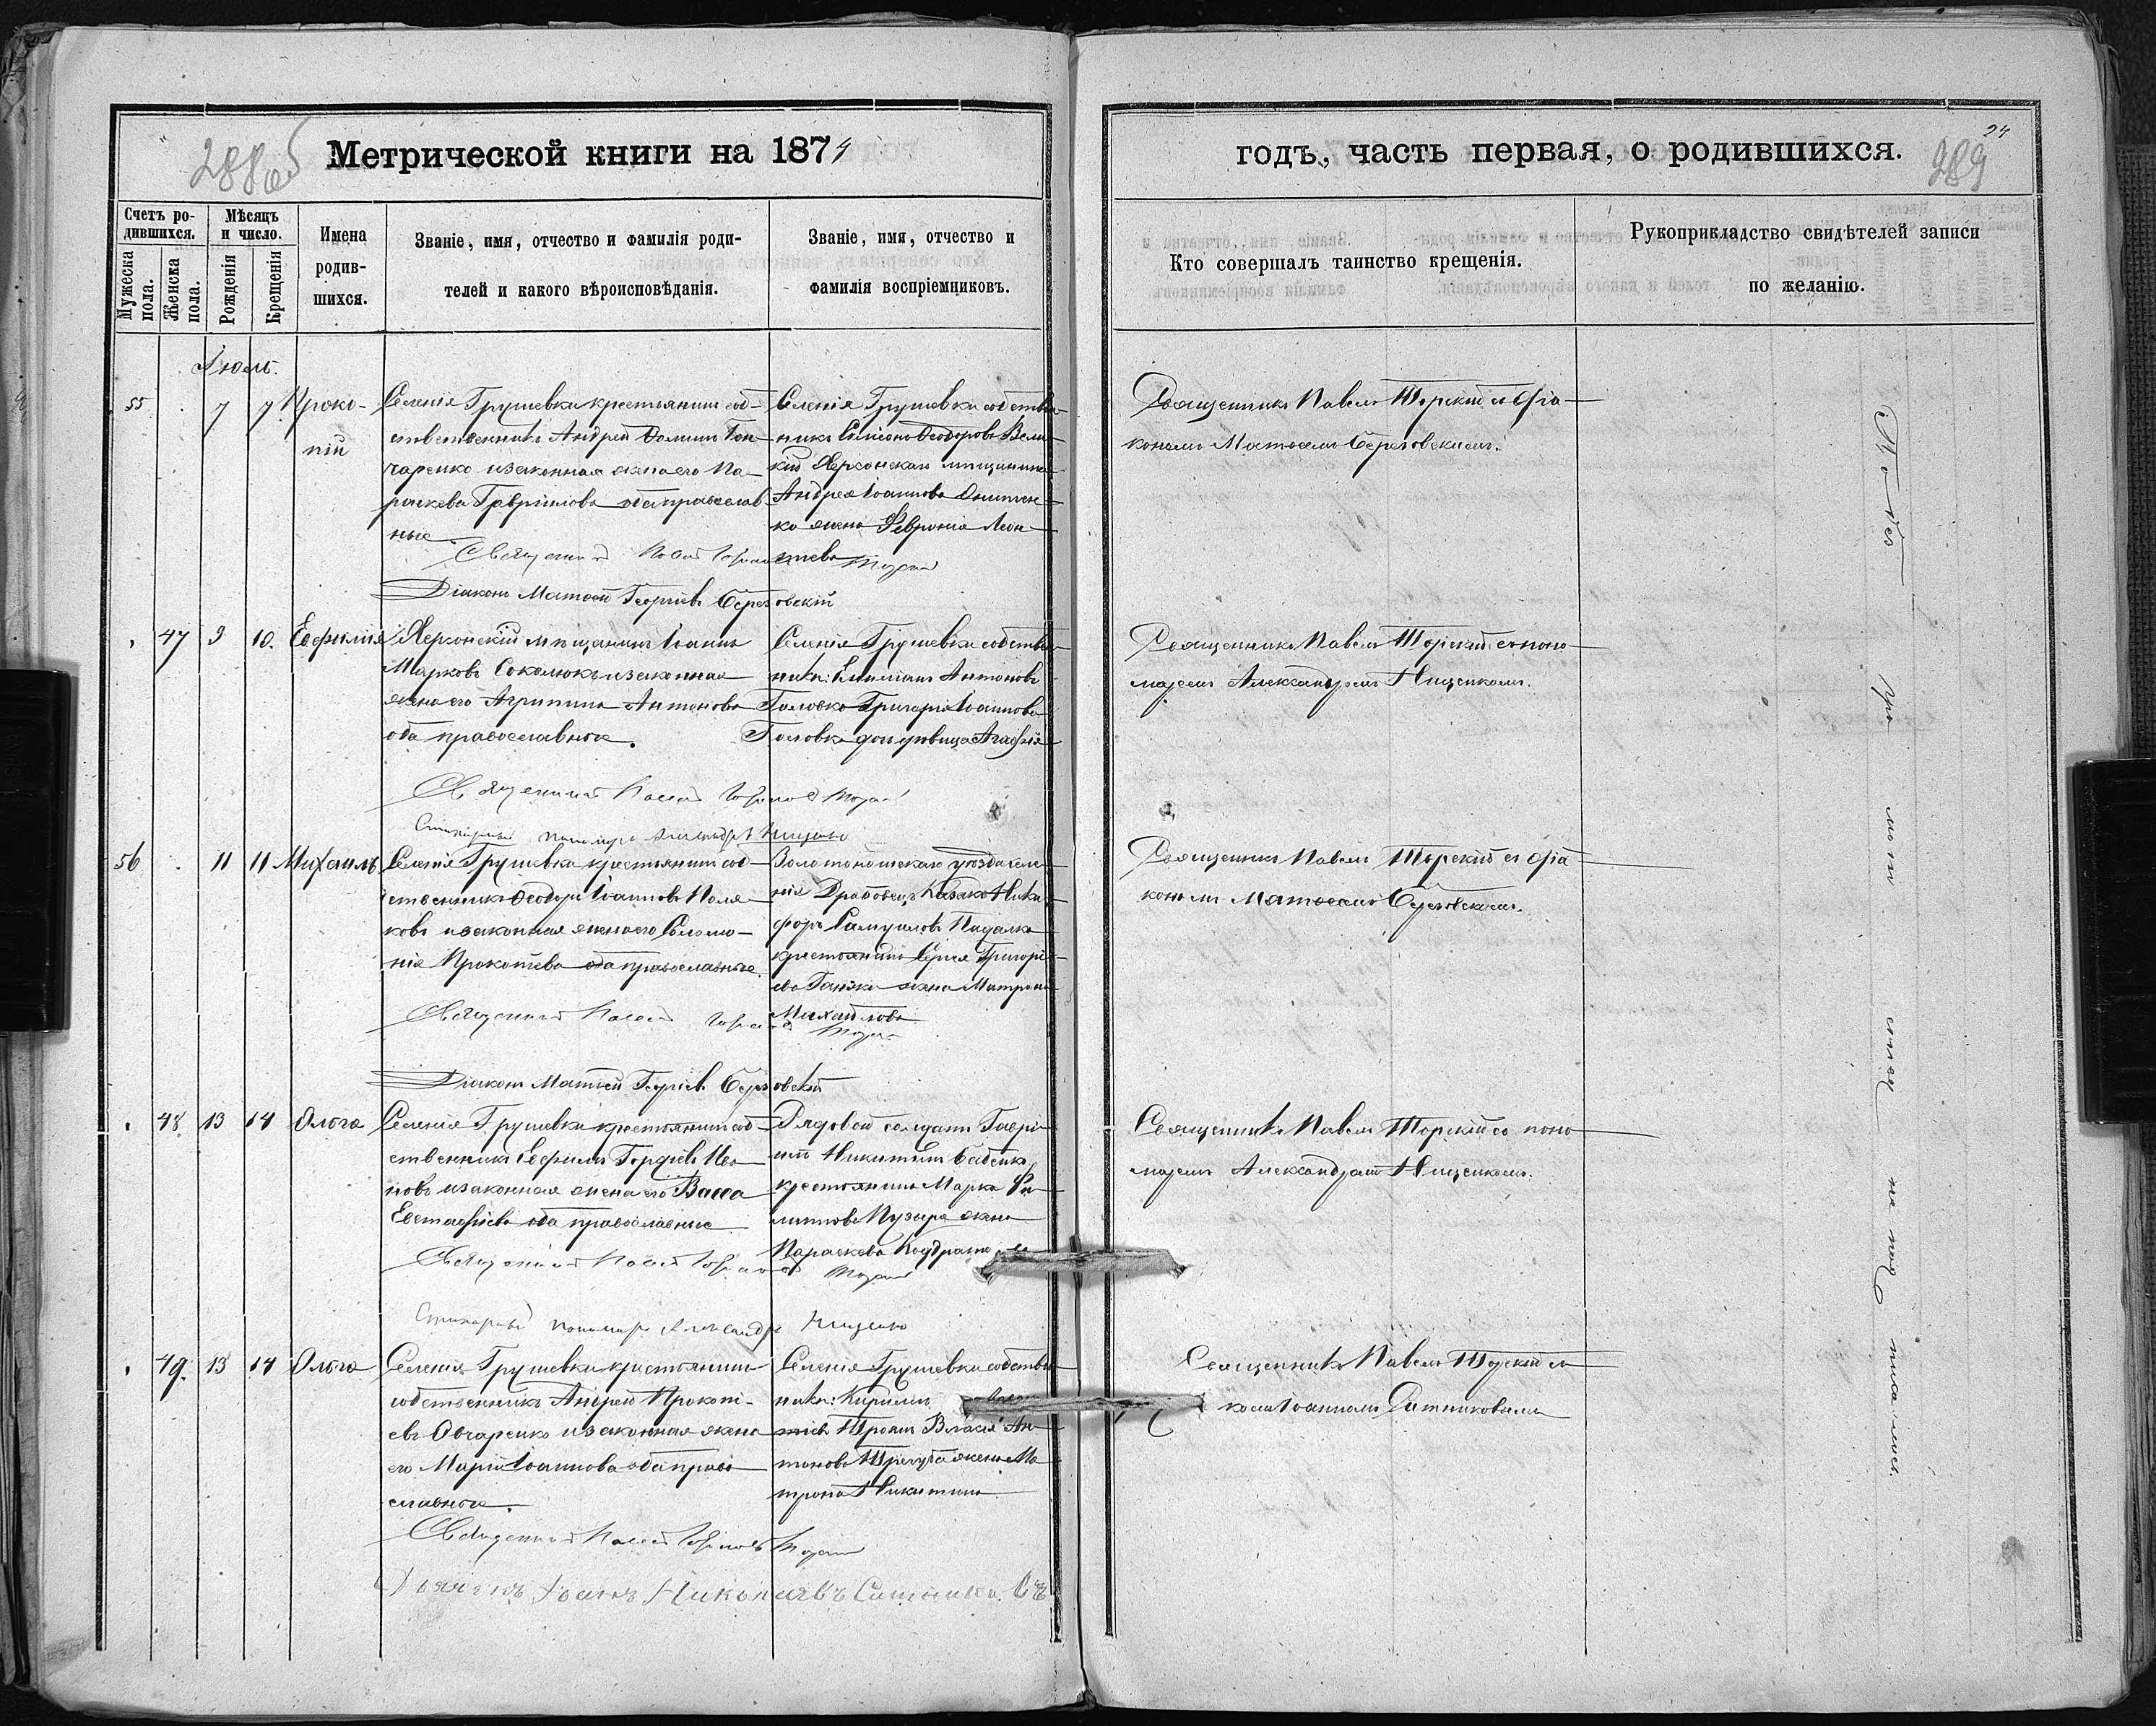 Метрической книги на 1874
годъ, часть первая, о родившихся.
288об
289
24
Счетъ ро-
дившихся.
Мужеска
пола.
Женска
пола.
Мѣсяцъ
и число.
Рожденія
Крещенія
Имена
родив-
шихся.
Званіе, имя, отчество и фамилія роди-
телей и какого вѣроисповѣданія.
Званіе, имя, отчество и
фамилія воспріемниковъ.
Кто совершалъ таинство крещенія.
Рукоприкладство свидѣтелей записи
по желанію.
Іюль.
55 7 7 Проко-
пій
Селенія Грушевки крестьянинъ соб-
ственникъ Андрей Ѳоминъ Гон-
чаренко и законная жена его Па-
раскева Гаврилова оба православ-
ные
Селенія Грушевки собствен-
никъ Симеонъ Ѳеодоровъ Вели-
кій Херсонскаго мѣщанина
Андрея Іоаннова
ка жена Февронія Леон-
тіева
Священникъ Павелъ Торскій съ діа-
кономъ Матѳеемъ Березовскимъ.
Священникъ Павелъ Торскій
Діаконъ Матѳей Георгіевъ Березовскій
47 9 10. Евфимія
Херсонскій мѣщанинъ Іоаннъ
Марковъ Соколюкъ и законная
жена его Агрипина Антонова
оба православные.
Селенія Грушевки собствен-
никъ: Антоновъ
Головко Григорія Іоаннова
Головка дочь дѣвица Агафія
Священникъ Павелъ Торскій съ поно-
маремъ Александромъ Нищенкомъ.
Священникъ Павелъ Торскій
Стихарный пономарь Александръ Нищенко
56 11 11 Михаилъ
Селенія Грушевки крестьянинъ соб-
ственникъ Ѳеодоръ Іоанновъ Поля-
ковъ и законная жена его Соломо-
нія Прокопіева оба православные.
Золотоношскаго уѣзда селе-
нія Драбовецъ Казакъ Ники-
форъ Самуиловъ
крестьянина Сергія Григорі-
ева Ганжи жена Матрона
Михайлова
Священникъ Павелъ Торскій съ діа-
кономъ Матѳеемъ Березовскимъ.
Священникъ Павелъ Торскій
Діаконъ Матѳей Георгіевъ Березовскій
48. 13 14 Ольга
Селенія Грушевки крестьянинъ соб-
ственникъ Евфимъ Гордіевъ Ива-
новъ и законная жена его Васса
Евстафіева оба православные
Рядовой солдатъ Гаврі-
илъ Никитинъ Бабенко
крестьянина Марка Фи-
липпова Пузыря жена
Параскева
Священникъ Павелъ Торскій со поно-
маремъ Александромъ Нищенкомъ.
Священникъ Павелъ Торскій
Стихарный пономарь Александръ Нищенко
49. 13 14 Ольга
Селенія Грушевки крестьянинъ
собственникъ Андрей Прокопі-
евъ Овчаренко и законная жена
его Марія Іоаннова оба право-
славные.
Селенія Грушевки собствен-
никъ: Кириллъ
Власія Ан-
тонова жена Ма-
трона Никитина
Священникъ Павелъ Торскій
комъ Іоанномъ Ситниковымъ
Священникъ Павелъ Торскій
Іоанъ Николаевъ